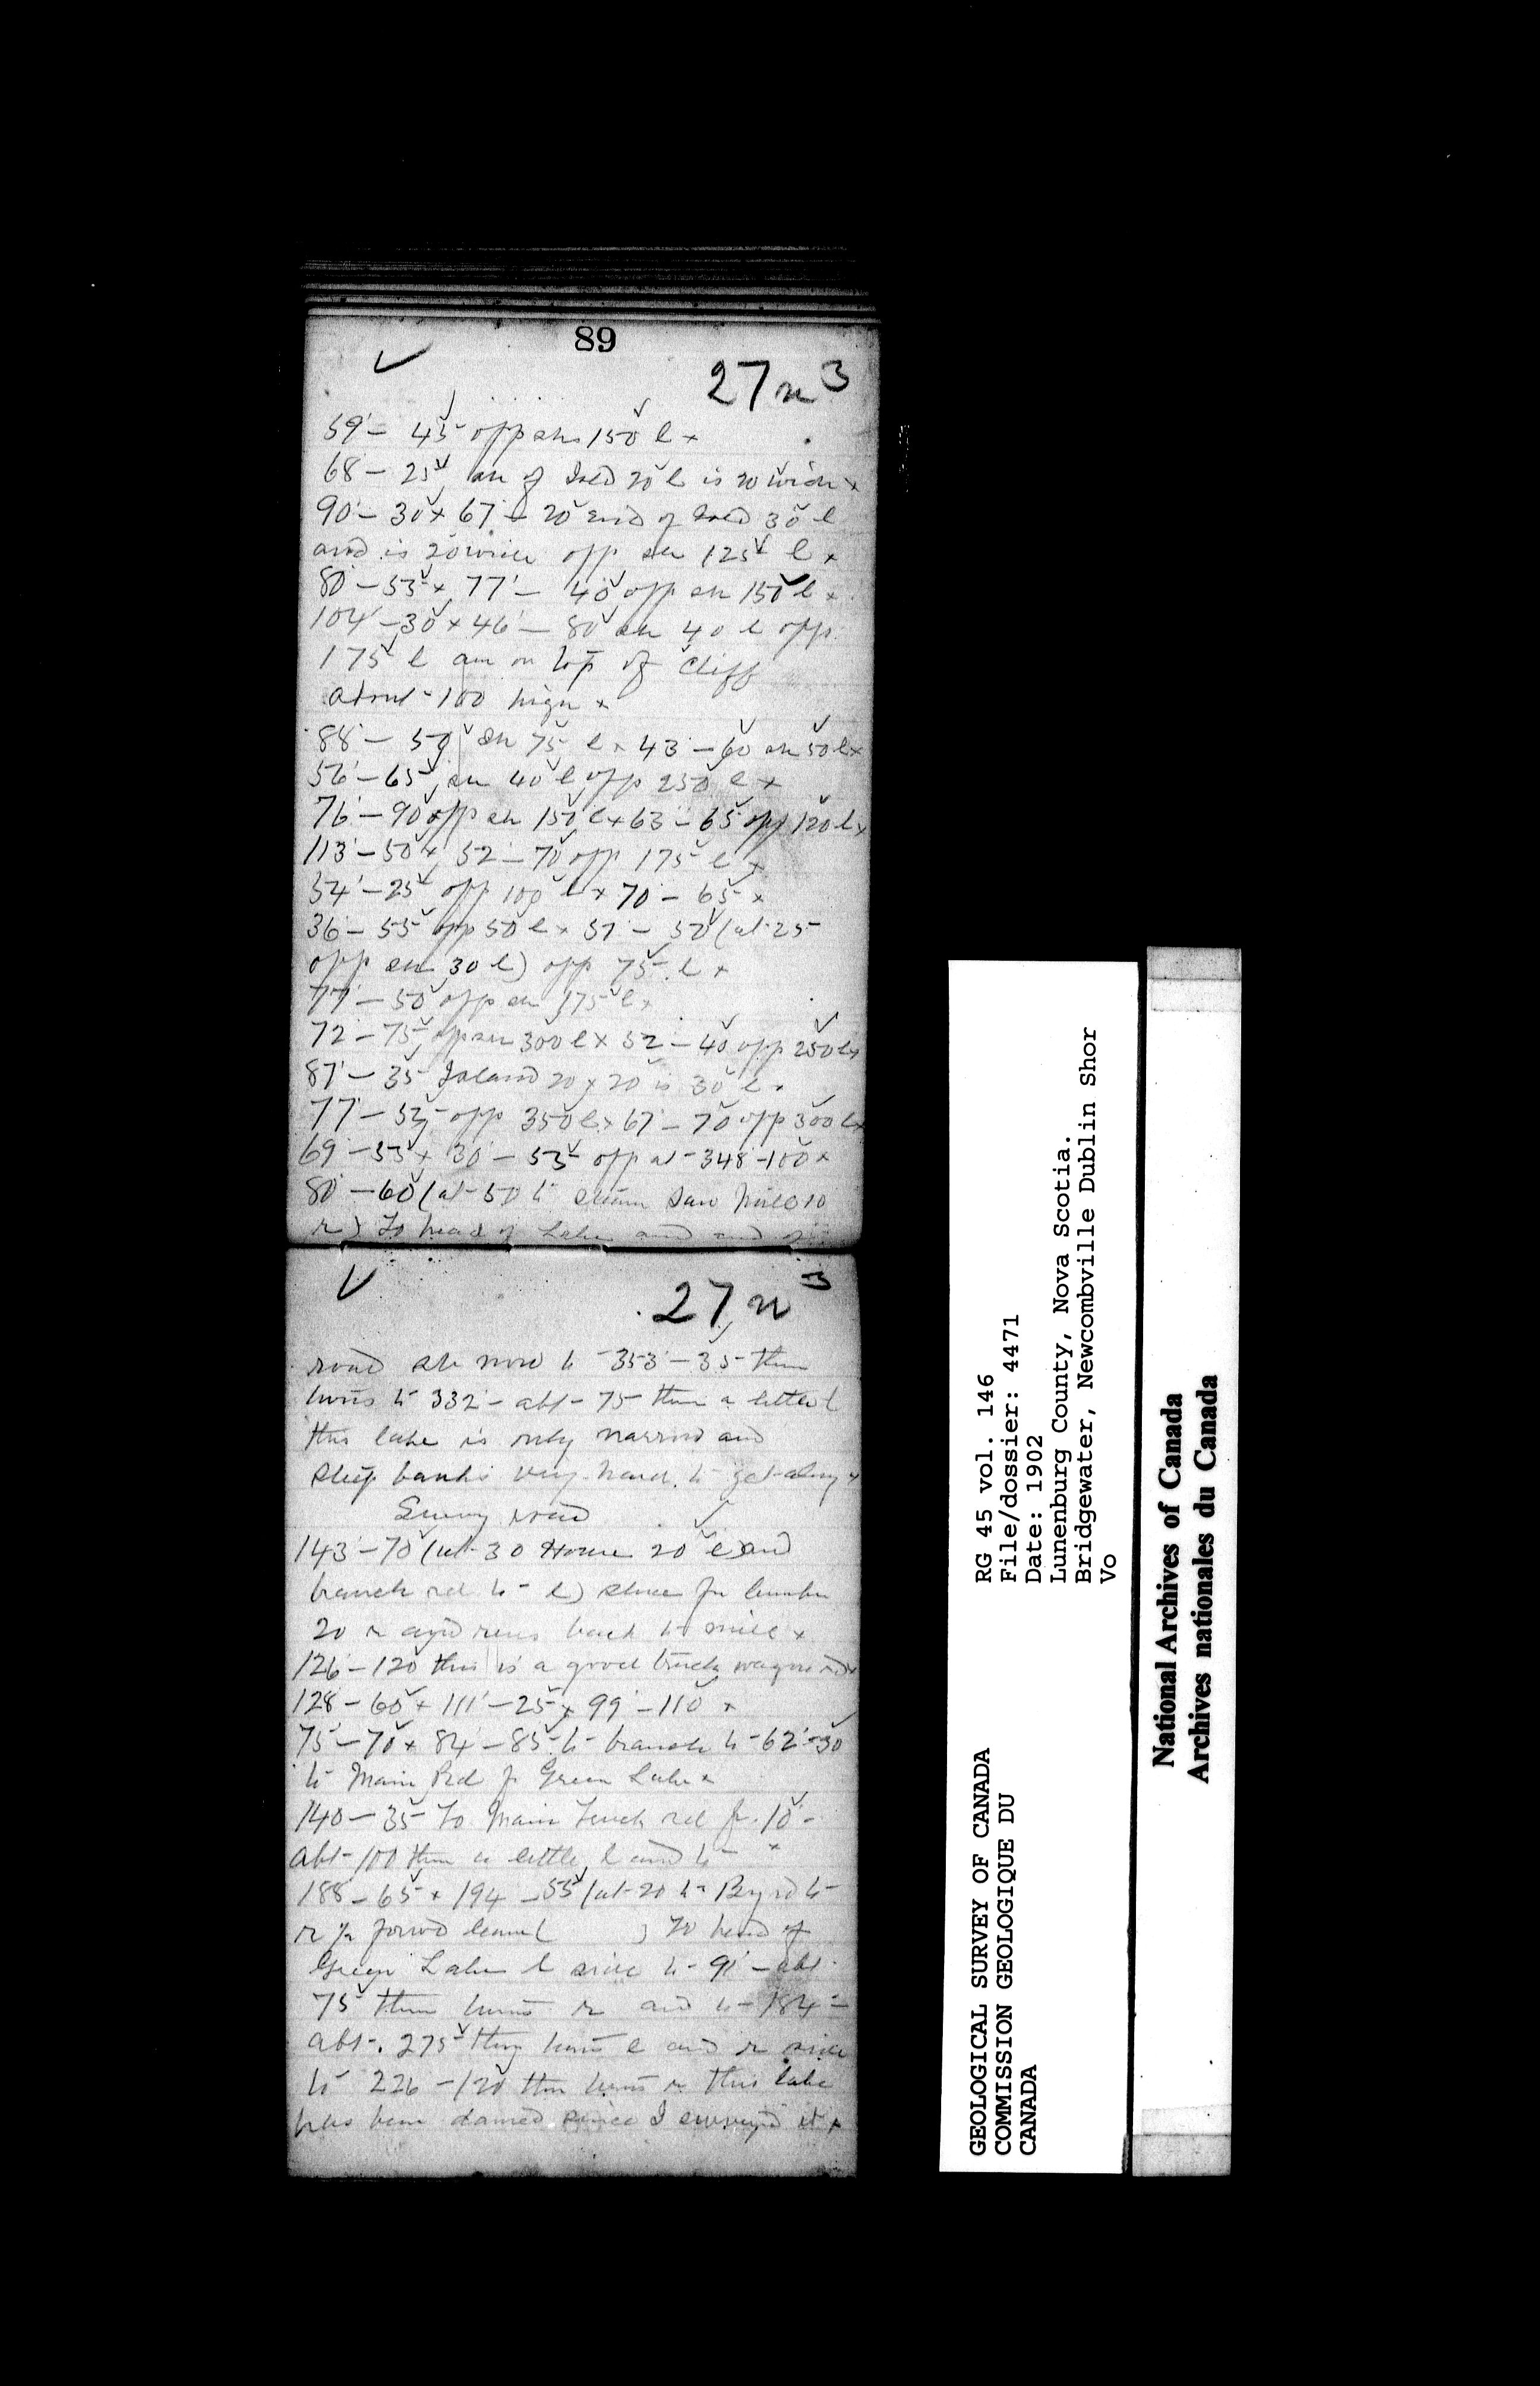 89
27 n 3
59 - 45 opp sh 150 l x
68 - 25 sh of Isld 20 l is 20 wide x
90 - 30 x 67 - 20 end of Isld 30 l
and is 20 wide opp sh 125 l x
80 - 55 x 77 - 40 opp sh 150 l x
104 - 30 x 46 - 80 sh 40 l opp
175 l am on top of Cliff
about 100 high x
88 - 50 sh 75 l x 43 - 60 sh 50 l x
56 - 65 sh 40 l opp 250 l x
76 - 90 opp sh 150 l x 63 - 65 opp 120 l x
113 - 50 x 52 - 70 opp 175 l x
54 - 25 opp 100 l x 70 - 65 x
36 - 55 opp 50 l x 51 - 50 (at 25
opp sh 30 l) opp 75 l x
77 - 50 opp sh 175 l x
72 - 75 opp sh 300 l x 52 - 40 opp 250 l x
87 - 35 Island 20 x 20 is 30 l x
77 - 55 opp 350 l x 67 - 70 opp 300 l x
69 - 55 x 30 - 55 opp at 348 - 100 x
80 - 60 (at 50 to steam Saw Mill 10
r) To head of Lake and end of
27 n 3
road sh now to 353 - 35 then
turns to 332 - abt 75 then a little l
this lake is only narrow and
steep banks very hard to get along x
Survey road
143 - 70 (at 30 House 20 l and
branch rd to l) sluce for lumber
20 r and runs back to mill x
126 - 120 this is a good truck wagon rd x
128 - 60 x 111 - 25 x 99 - 110 x
75 - 70 x 84 - 85 to branch to 62 - 30
to Main Rd fr Green Lake x
140 - 35 To Main Truck rd fr 10 -
abt 100 then a little l and to x
188 - 65 x 194 - 55 (at 20 to By rd to
r ) To head of
Green Lake l side to 91 - abt
75 then turns r and to 184 -
abt 275 then turns l and r side
to 226 - 120 then turns r this lake
has been damed since I surveyed it x
RG 45 vol. 146
File/dossier: 4471
Date: 1902
Lunenburg County, Nova Scotia.
Bridgewater, Newcombville Dublin Shor
Vo
GEOLOGICAL SURVEY OF CANADA
COMMISSION GEOLOGIQUE DU
CANADA
National Archives of Canada
Archives nationales du Canada